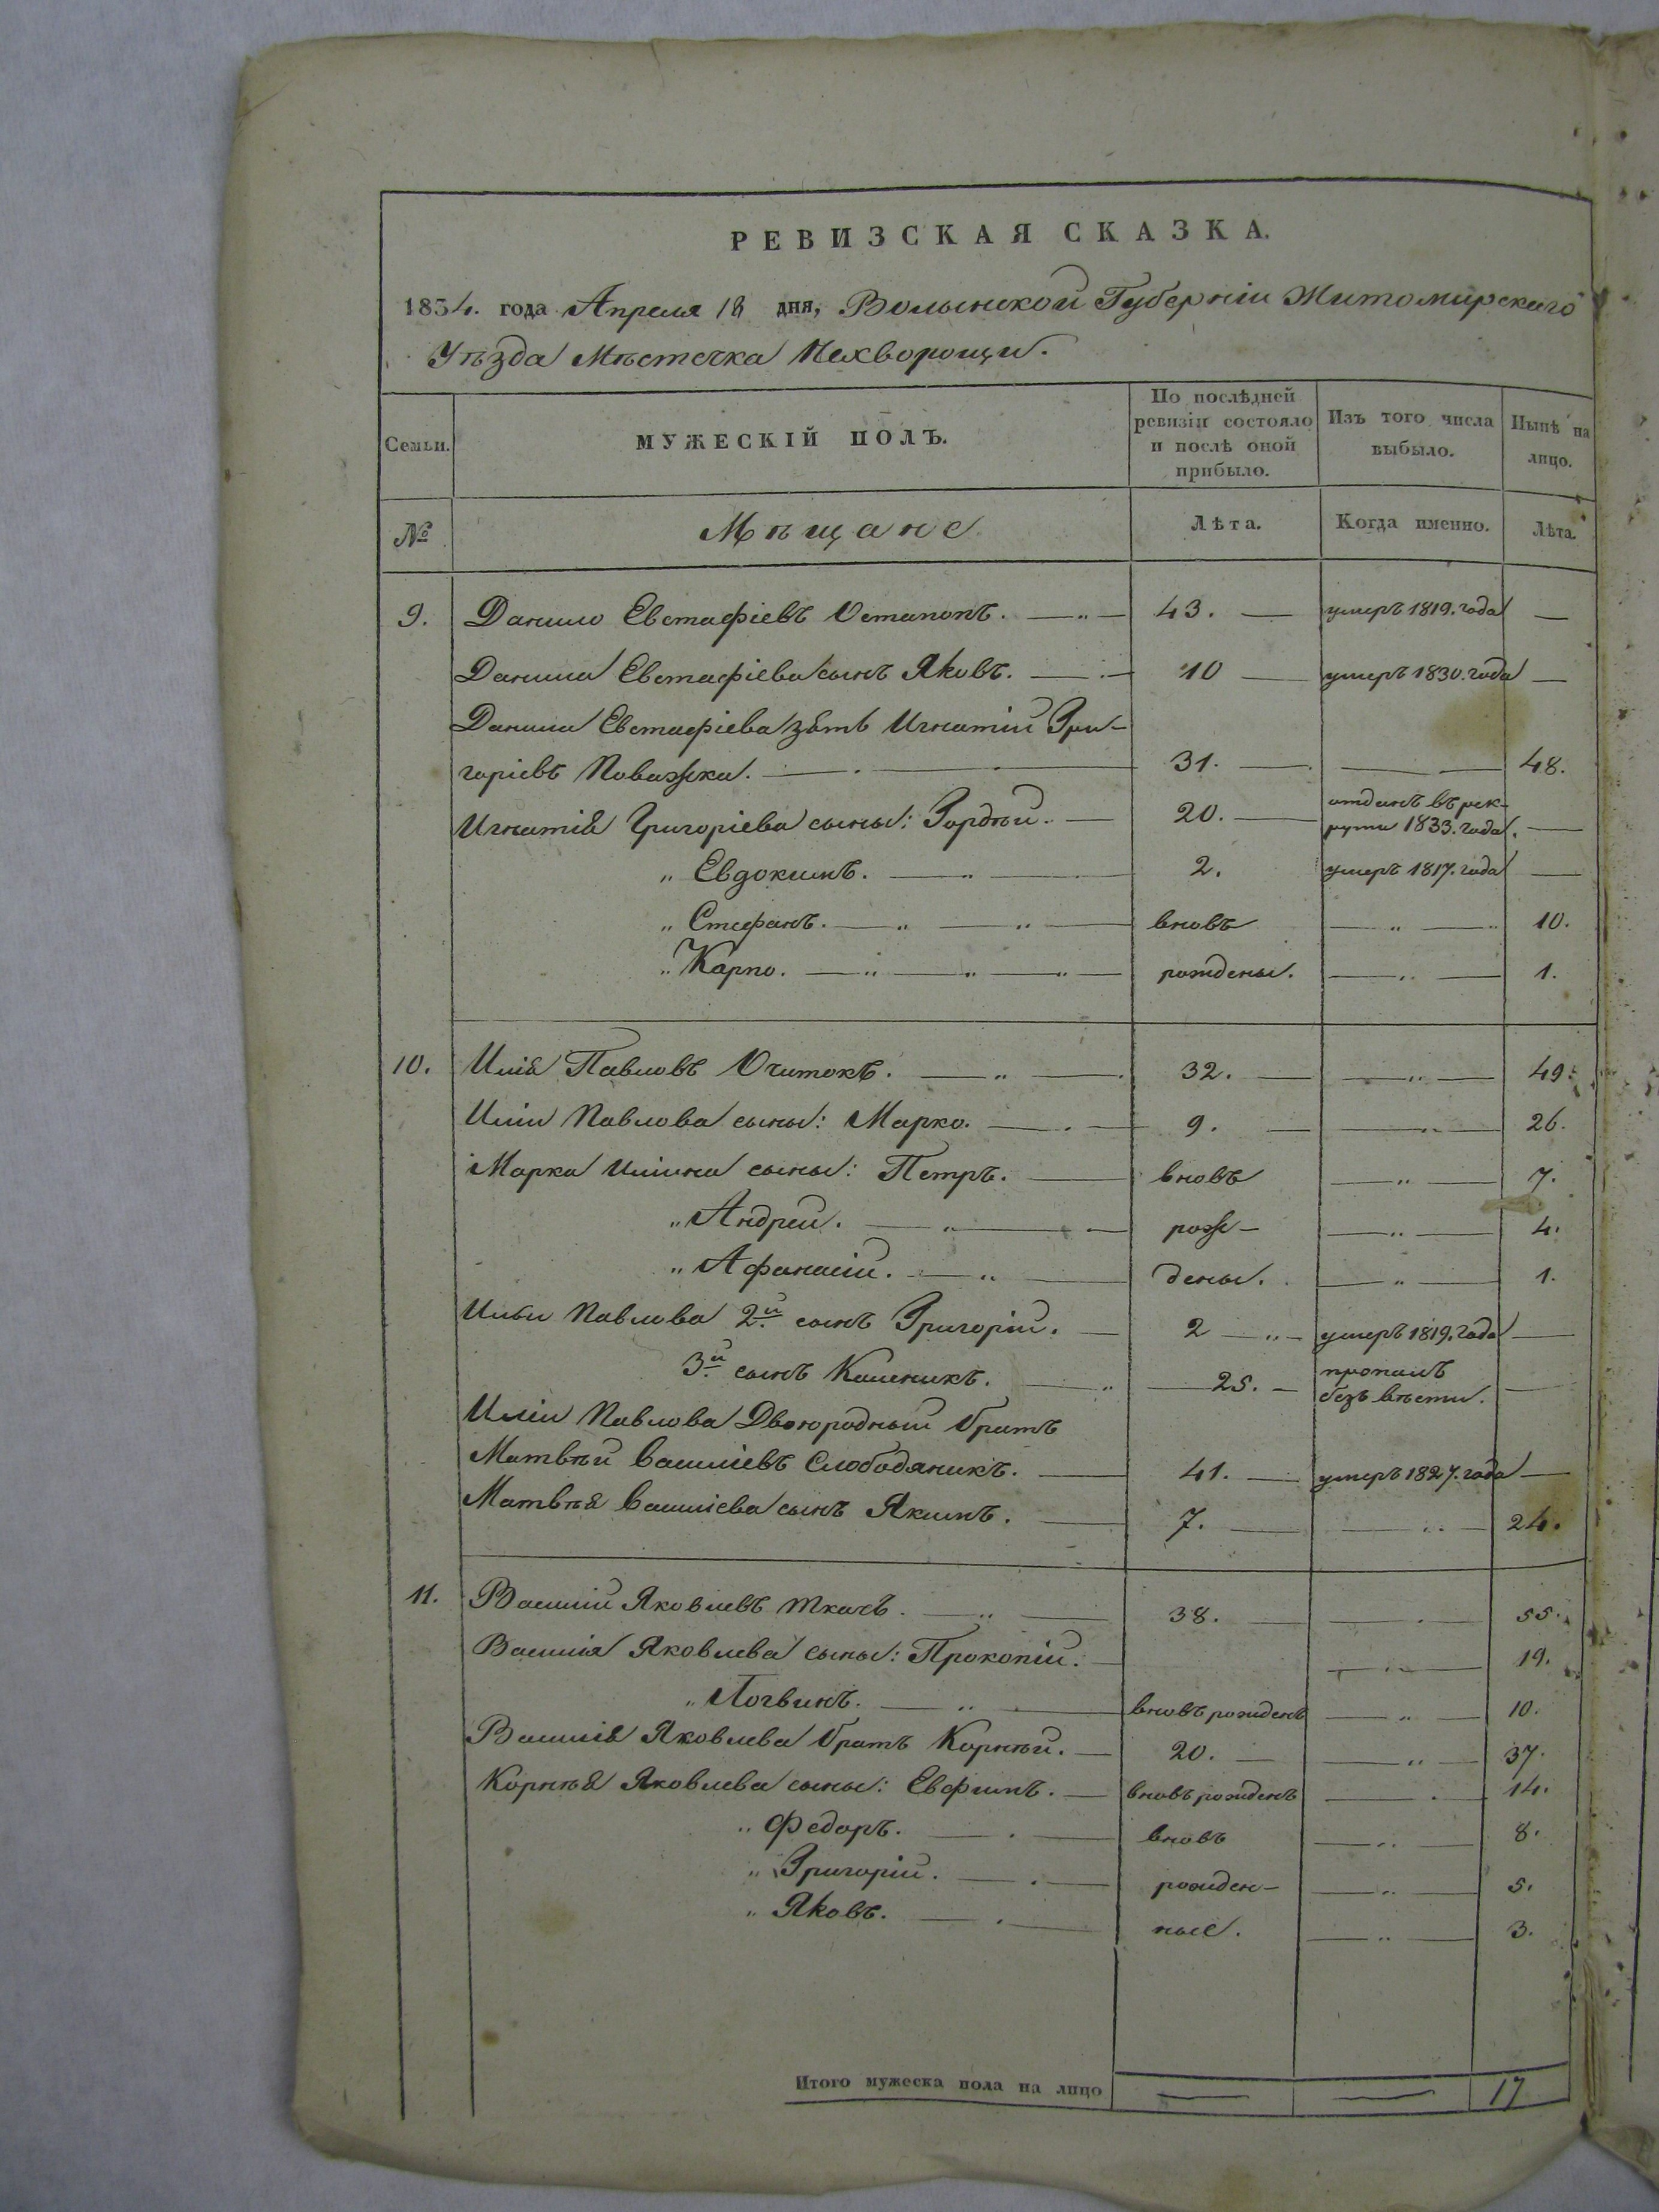 РЕВИЗСКАЯ СКАЗКА.
1834. года Апреля 18 дня, Волынской Губерніи Житомирскаго
Уѣзда Мѣстечка Нехворощи.
Семьи. МУЖЕСКІЙ ПОЛЪ. По послѣдней ревизіи состояло и послѣ оной прибыло. Изъ того числа выбыло. Нынѣ на лицо.
№ Мѣщане Лѣта. Когда именно. Лѣта.
9. Данило Евстафіевъ Остапопъ. 43. умеръ 1819. года —
Данила Евстафіева сынъ Яковъ. 10 умеръ 1830. года —
Данила Евстафіева зять Игнатій Гри-
горіевъ Поважка. 31. — 48.
Игнатія Григоріева сыны: Гордѣй. 20. отданъ въ рек-
руты 1833. года. —
„ Евдокимъ. 2. умеръ 1817. года —
„ Стефанъ. вновь — 10.
„ Карпо. рождены. — 1.
10. Илія Павловъ Очитокъ. 32. — 49.
Иліи Павлова сыны: Марко. 9. — 26.
Марка Иліина сыны: Петръ. вновь — 7.
„ Андрей. рож- — 4.
„ Афанасій. дены. — 1.
Ильи Павлова 2й сынъ Григорій. 2 умеръ 1819. года —
3й сынъ Каленикъ. 25. пропалъ
безъ вѣсти. —
Иліи Павлова Двоюродный братъ
Матвѣй Василіевъ Слободяникъ. 41. умеръ 1827. года —
Матвѣя Василіева сынъ Якимъ. 7. — 24.
11. Василій Яковлевъ Ткачъ. 38. — 55.
Василія Яковлева сыны: Прокопій. — 19.
„ Логвинъ. вновь рожденъ — 10.
Василія Яковлева братъ Корнѣй. 20. — 37.
Корнѣя Яковлева сыны: Евфимъ. вновь рожденъ — 14.
„ Федоръ. вновь — 8.
„ Григорій. рожден- — 5.
„ Яковъ. ные. — 3.
Итого мужеска пола на лицо — — 17